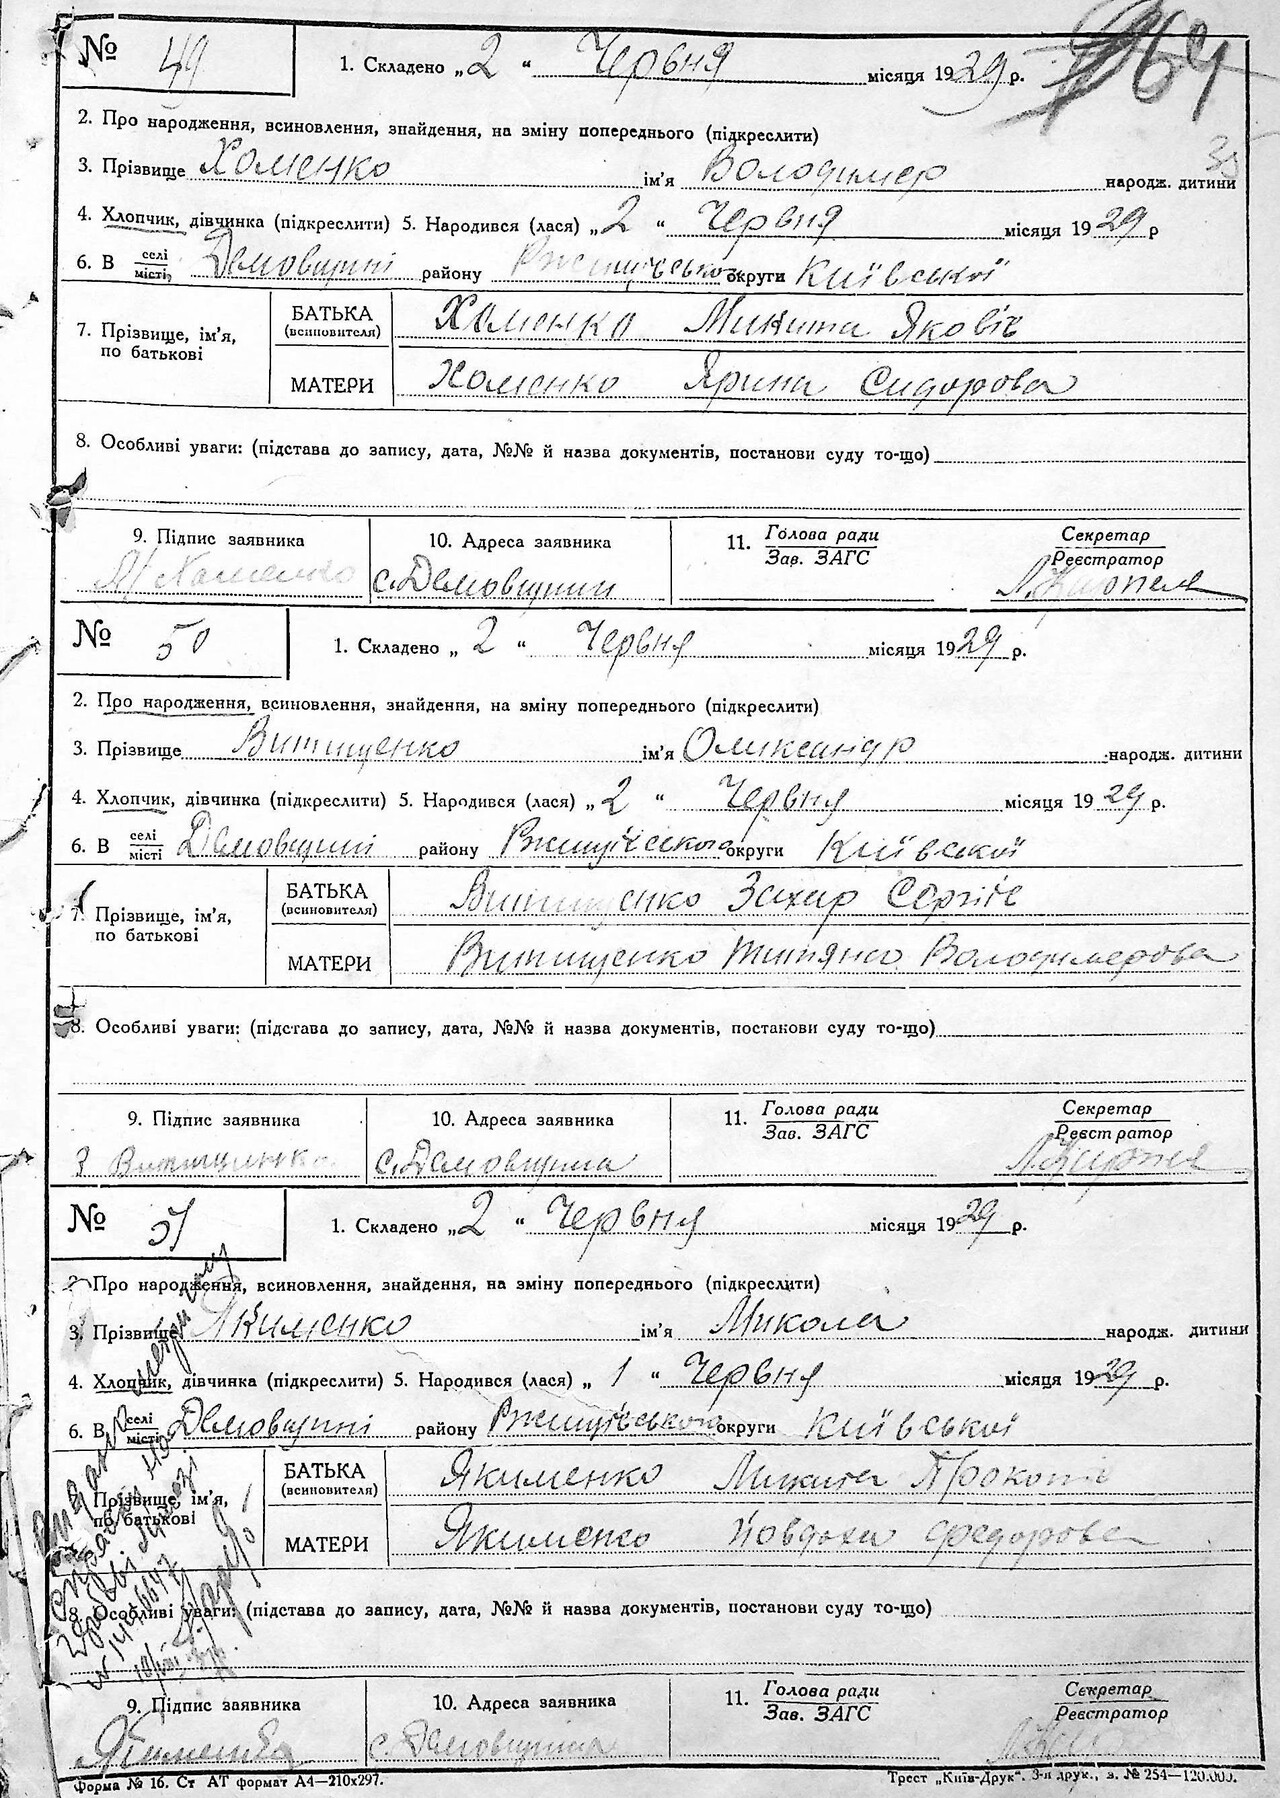 № 49
1. Складено „2“ Червня місяця 1929 р.
2. Про народження, всиновлення, знайдення, на зміну попереднього (підкреслити)
3. Прізвище Хоменко ім'я Володимер народж. дитини
4. Хлопчик, дівчинка (підкреслити) 5. Народився (лася) „2“ Червня місяця 1929 р
6. В селі місті Демовщині району Ржищівського округи Київської
7. Прізвище, ім'я, по батькові
БАТЬКА (всиновителя) Хоменко Микита Яковів
МАТЕРИ Хоменко Ярина Сидорова
8. Особливі уваги: (підстава до запису, дата, №№ й назва документів, постанови суду то-що)
9. Підпис заявника 10. Адреса заявника 11. Голова ради Зав. ЗАГС Секретар Реєстратор
Хоменко с. Демовщини
№ 50
1. Складено „2“ Червня місяця 1929 р.
2. Про народження, всиновлення, знайдення, на зміну попереднього (підкреслити)
3. Прізвище Витищенко ім'я Олександр народж. дитини
4. Хлопчик, дівчинка (підкреслити) 5. Народився (лася) „2“ Червня місяця 1929 р.
6. В селі місті Демовщині району Ржищівського округи Київської
7. Прізвище, ім'я, по батькові
БАТЬКА (всиновителя) Витищенко Захар Сергіїв
МАТЕРИ Витищенко Титяна Володимерова
8. Особливі уваги: (підстава до запису, дата, №№ й назва документів, постанови суду то-що)
9. Підпис заявника 10. Адреса заявника 11. Голова ради Зав. ЗАГС Секретар Реєстратор
З Витищенко с. Демовщина
№ 51
1. Складено „2“ Червня місяця 1929 р.
2. Про народження, всиновлення, знайдення, на зміну попереднього (підкреслити)
3. Прізвище Якименко ім'я Микола народж. дитини
4. Хлопчик, дівчинка (підкреслити) 5. Народився (лася) „1“ Червня місяця 1929 р.
6. В селі місті Демовщині району Ржищівського округи Київської
7. Прізвище, ім'я, по батькові
БАТЬКА (всиновителя) Якименко Микита Прокопів
МАТЕРИ Якименко Йовдоха Федорова
8. Особливі уваги: (підстава до запису, дата, №№ й назва документів, постанови суду то-що)
9. Підпис заявника 10. Адреса заявника 11. Голова ради Зав. ЗАГС Секретар Реєстратор
с. Демовщина
Форма № 16. Ст АТ формат А4—210х297. Трест „Київ-Друк“. 3-я друк., з. № 254—120.000.